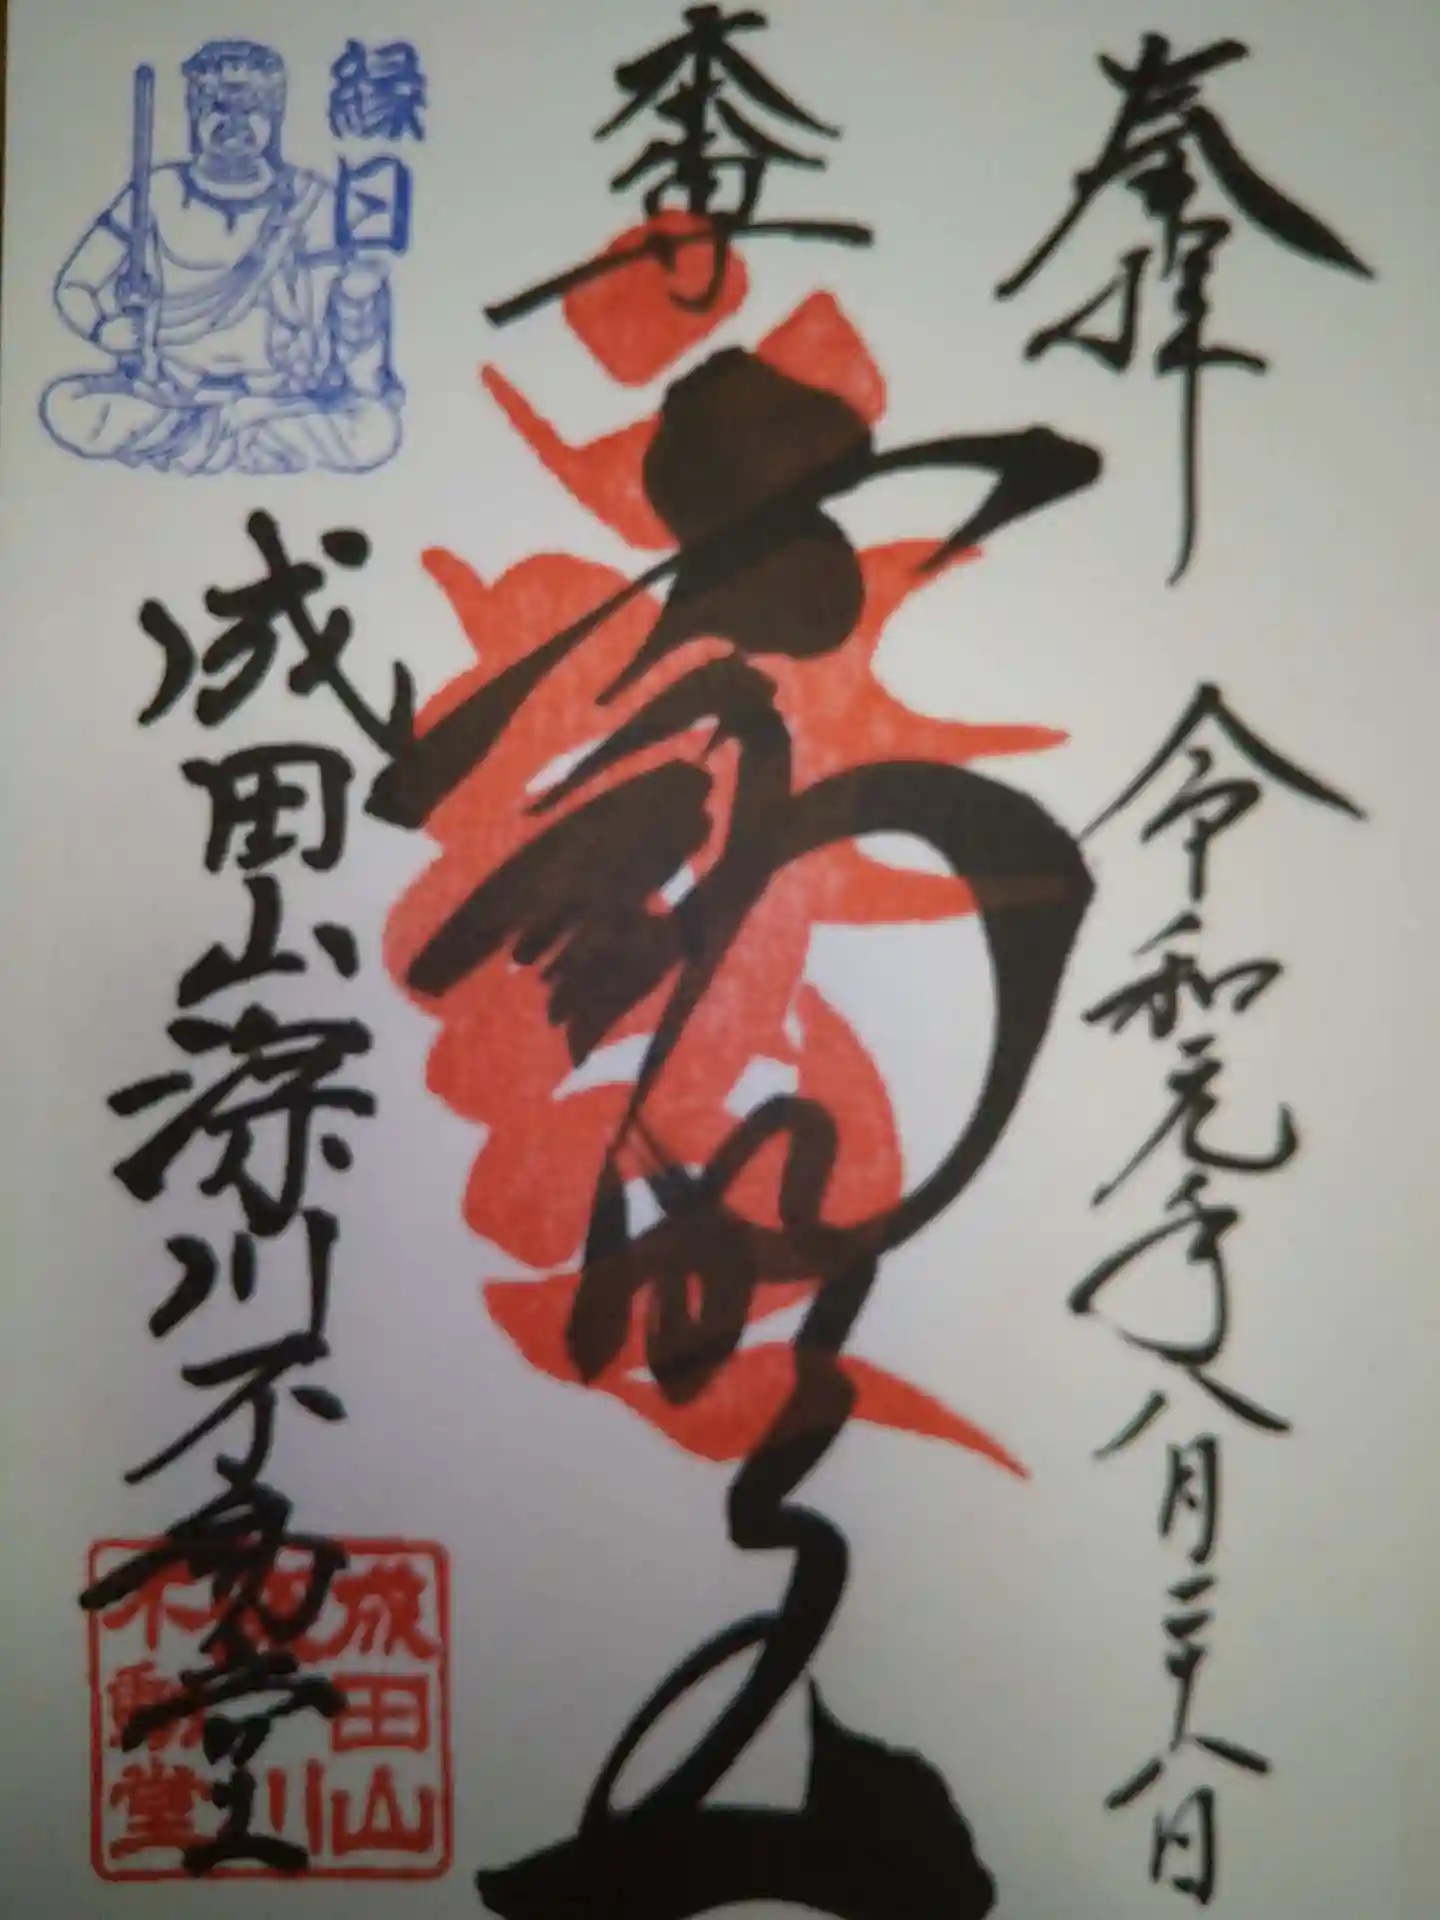 奉拝
令和元年八月二十八日
本尊
不動明王
縁日
成田山深川不動堂
成田山
深川
不動堂